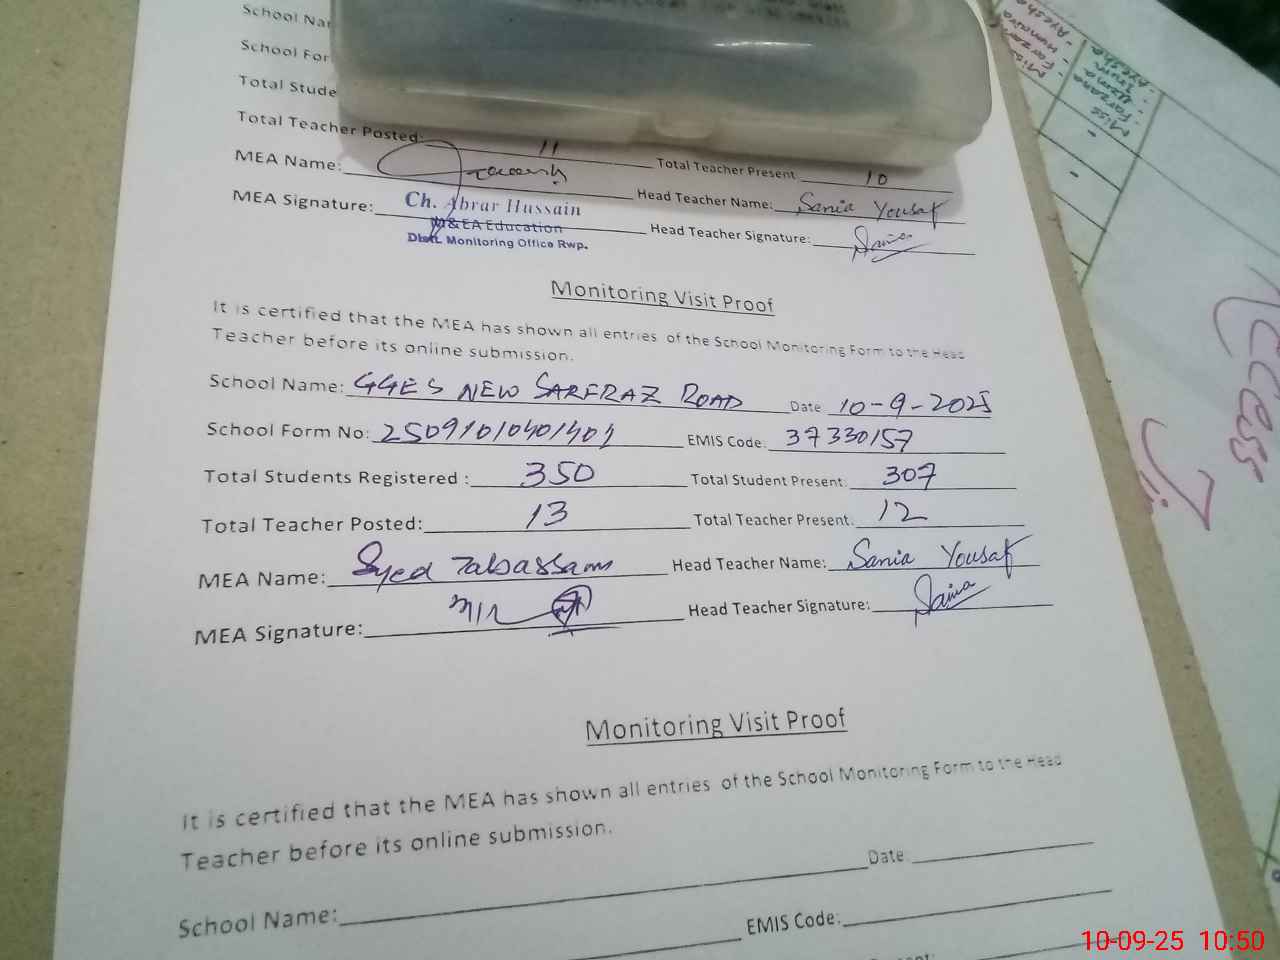 School Nar
School For
Total Stude
Total Teacher Posted: 11 Total Teacher Present: 10
MEA Name: Head Teacher Name: Sania Yousaf
MEA Signature: Ch. Abrar Hussain Head Teacher Signature: Sania
M&EA Education
Distt. Monitoring Office Rwp.
Monitoring Visit Proof
It is certified that the MEA has shown all entries of the School Monitoring Form to the Head
Teacher before its online submission.
School Name: GGES NEW SARFRAZ ROAD Date 10-9-2025
School Form No: EMIS Code: 37330157
Total Students Registered : 350 Total Student Present: 307
Total Teacher Posted: 13 Total Teacher Present: 12
MEA Name: Syed Tabassam Head Teacher Name: Sania Yousaf
MEA Signature: Head Teacher Signature: Sania
Monitoring Visit Proof
It is certified that the MEA has shown all entries of the School Monitoring Form to the Head
Teacher before its online submission.
Date:
School Name:
EMIS Code:
10-09-25 10:50
Miss
- Farzana
- Uzma
- Ayesha